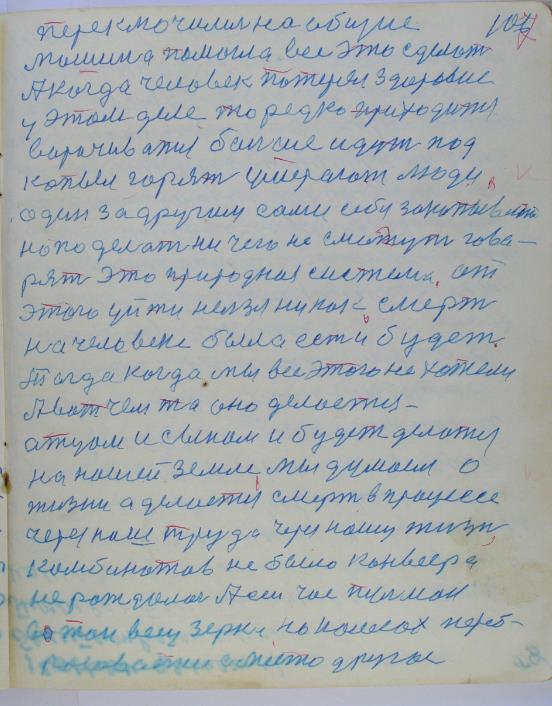 переключился на общие 107
машина помогла все это сделат
А когда человек потерял здоровие
у этом деле то редко приходится
ворачиватся болние идут под
копыл горят умерают люди
один за другим сами себя закопывают
но поделат ни чего не смогут гова-
рят это природная система. от
этого уйти нелзя ни как. смерт
на человеке была ест и будет.
Тогда когда мы все этого не хотели
А вот чем та оно делается-
атцом и сыном и будет делатся
на нашей земле мы думаем о
жизни а делается смерт в процессе
через наш труда через нашу жизн,
комбинатов не было конвеера
не рождалос А сичас пулман
вотон весу зерна на колесах переб-
расоват и место другое